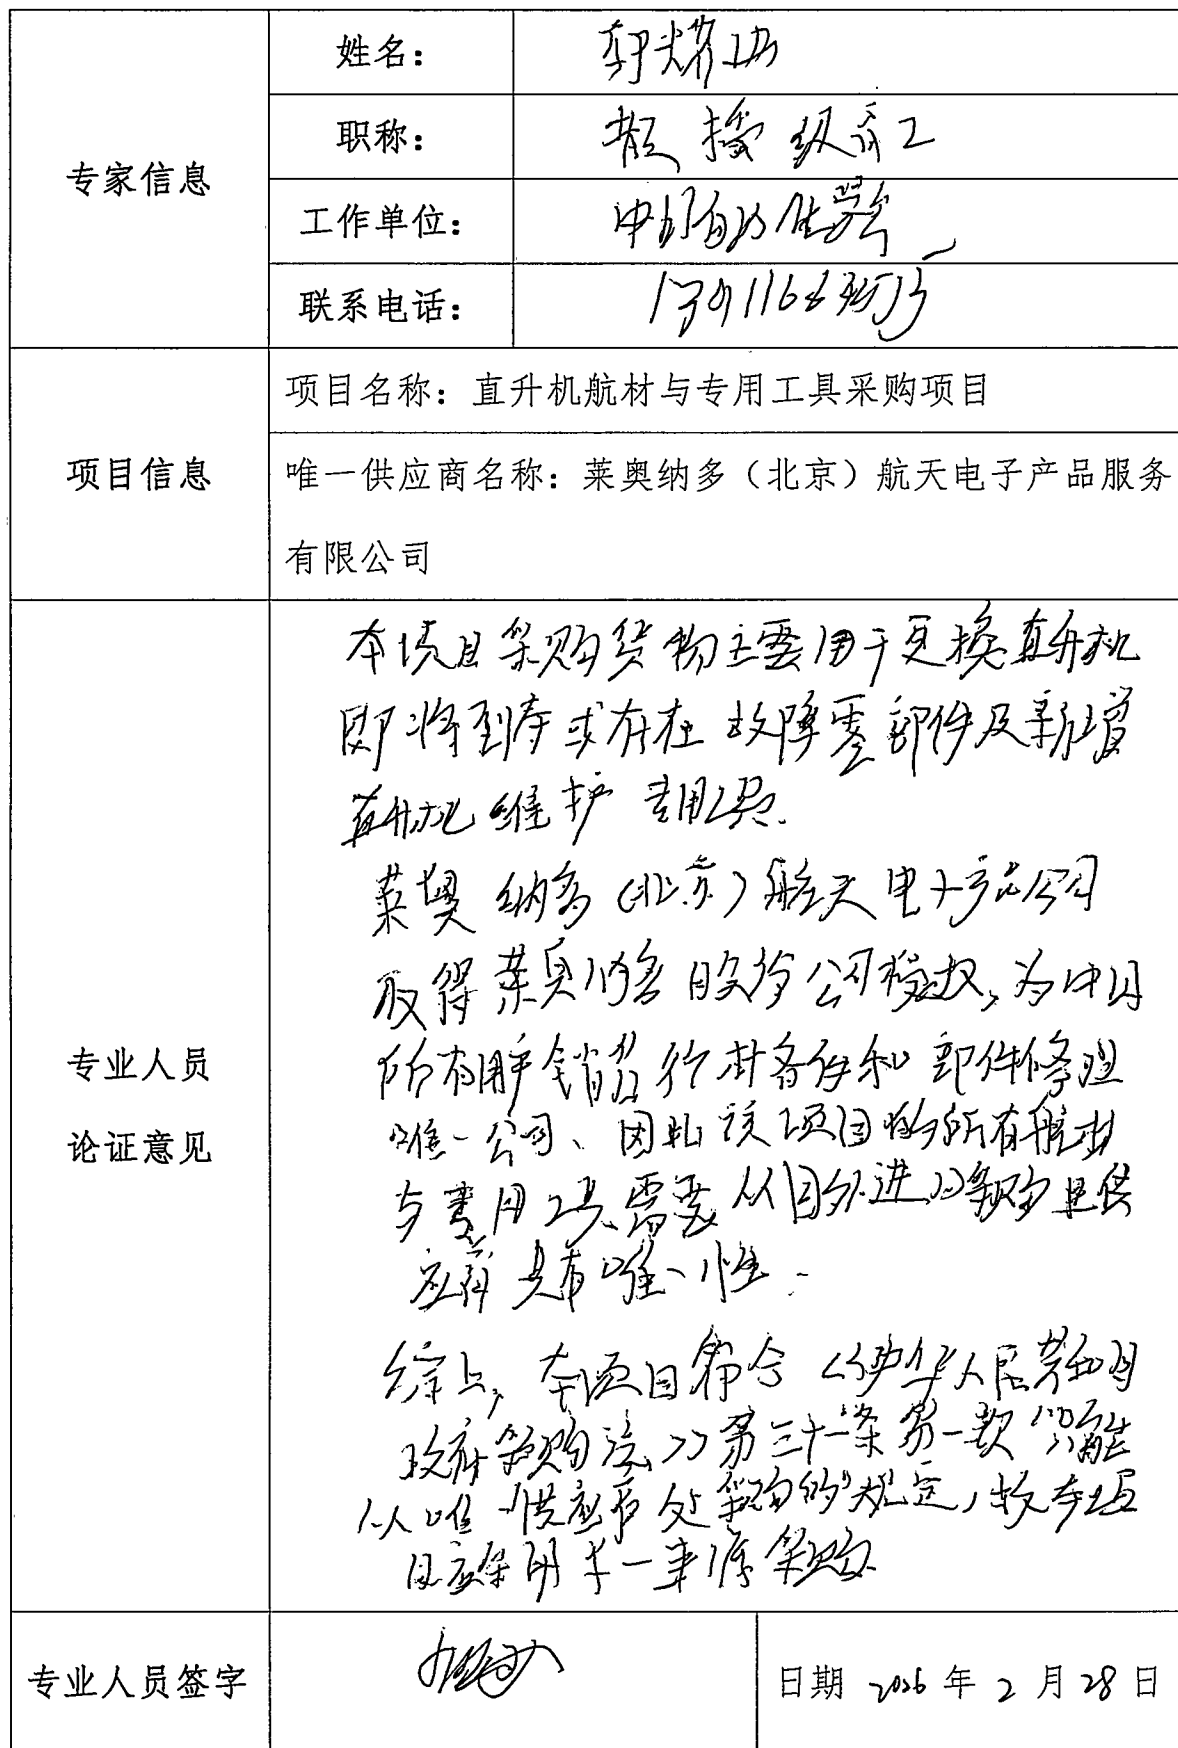 专家信息
姓名：
职称：
教授级高工
工作单位：
联系电话：
项目信息
项目名称：直升机航材与专用工具采购项目
唯一供应商名称：莱奥纳多（北京）航天电子产品服务
有限公司
专业人员
论证意见
本项目采购货物主要用于更换直升机
即将到寿或存在故障零部件及新增
直升机维护专用工具.
莱奥纳多(北京)航天电子产品公司
取得莱奥纳多股份公司授权,为中国
所有用户销售航材备件和部件修理
唯一公司、因此该项目的所有航材
与专用工具需要从国外进口采购且供
应商具有唯一性.
综上,本项目符合《中华人民共和国
政府采购法》第三十一条第一款"只能
从唯一供应商处采购的"规定,故本项
目应采用单一来源采购.
专业人员签字
日期 2026 年 2 月 28 日